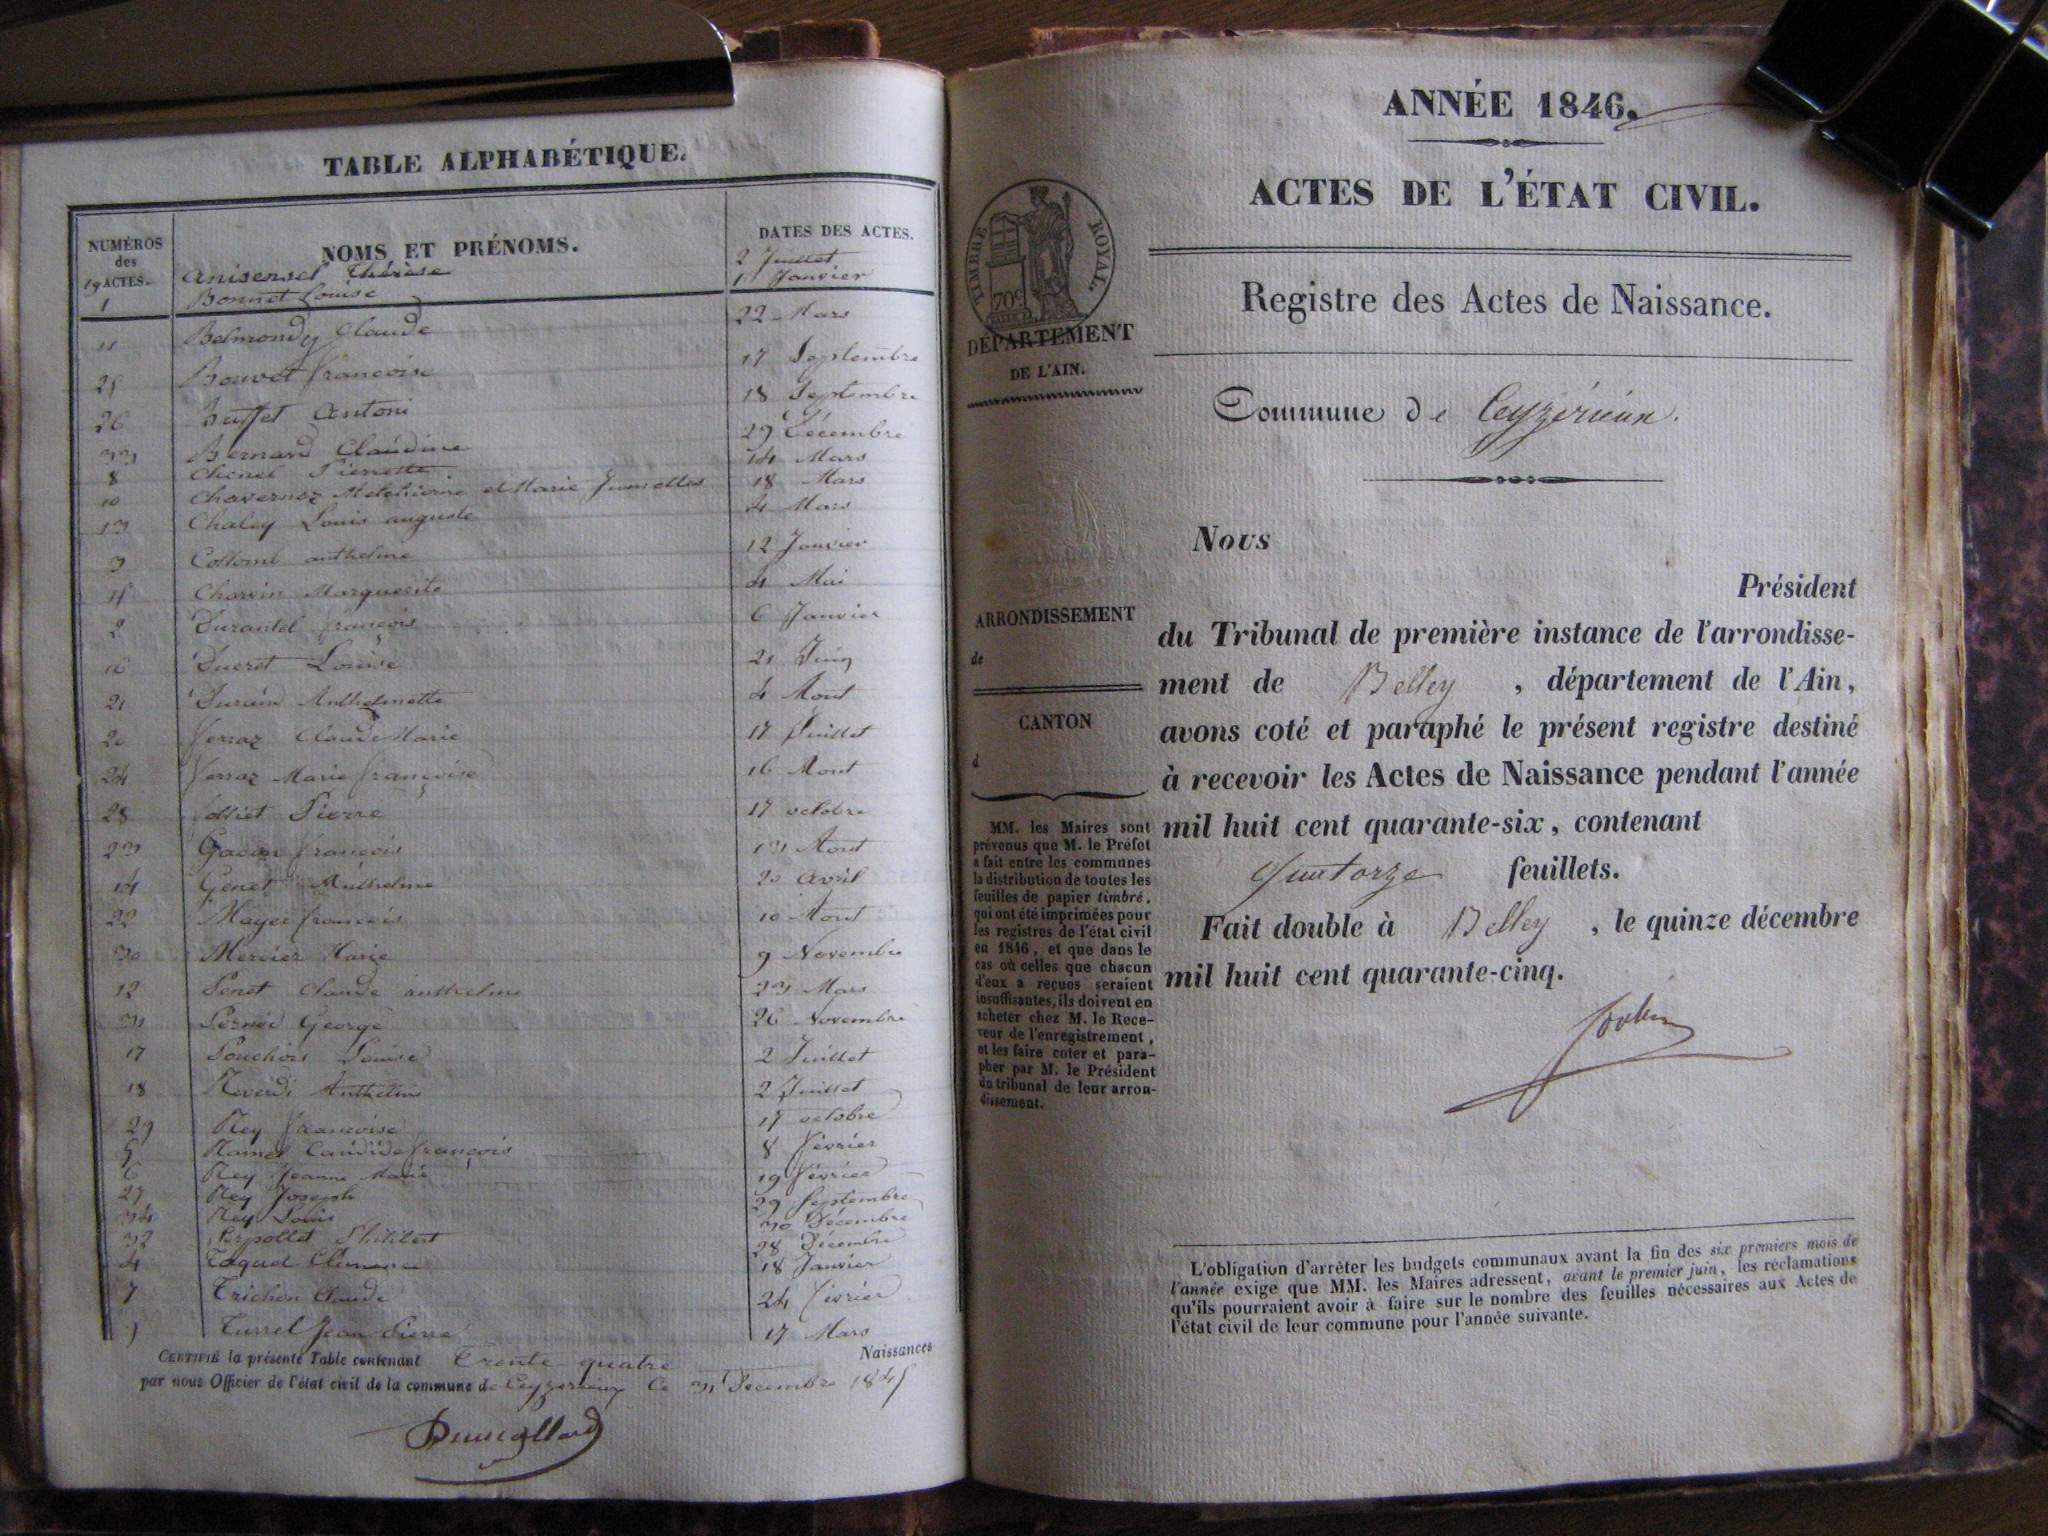 TABLE ALPHABÉTIQUE.
NUMÉROS des ACTES. NOMS ET PRÉNOMS. DATES DES ACTES.
19 Thérèse 2 Juillet
1 Bonnet Louise 1 Janvier
11 Belmondy Claude 22 Mars
25 Bouvet françoise 17 Septembre
26 Buffet Antoni 18 Septembre
33 Bernard Claudine 29 Décembre
8 Chenel Pierrette 14 Mars
10 Chavernoz Melchiorine et Marie Jumelles 18 Mars
13 Chaley Louis auguste 4 Mars
3 Collomb anthelme 12 Janvier
15 Charvin Marguerite 4 Mai
2 Durantel françois 6 Janvier
16 Ducret Louise 21 Juin
21 Durand Anthelmette 4 Aout
20 ferraz Claude Marie 17 Juillet
24 ferraz Marie françoise 16 Aout
28 Jolliet Pierre 17 octobre
23 Gacon françois 13 Aout
14 Genet Anthelme 20 avril
22 Mayer françois 10 Aout
30 Mercier Marie 9 Novembre
12 Penet Claude anthelme 23 Mars
31 George 26 Novembre
17 Ponchon Louise 2 Juillet
18 Reverdi Anthelme 2 Juillet
29 Rey françoise 17 octobre
5 Ramel Candide françois 8 février
6 Rey Jeanne Marie 19 février
27 Rey Joseph 29 Septembre
34 Rey Louis 30 Décembre
32 Philibert 28 Décembre
4 Taquet Clémence 18 Janvier
7 Trichon Claude 24 février
9 Turrel Jean Pierre 17 Mars
CERTIFIÉ la présente Table contenant Trente quatre Naissances
par nous Officier de l'état civil de la commune de Ceyzerieux Ce 31 Décembre 1845
ANNÉE 1846.
ACTES DE L'ÉTAT CIVIL.
TIMBRE ROYAL.
70c
DÉPARTEMENT
DE L'AIN.
Registre des Actes de Naissance.
Commune de Ceyzérieux.
Nous
Président
ARRONDISSEMENT
de
CANTON
d
du Tribunal de première instance de l'arrondisse-
ment de Belley, département de l'Ain,
avons coté et paraphé le présent registre destiné
à recevoir les Actes de Naissance pendant l'année
mil huit cent quarante-six, contenant
Quatorze feuillets.
Fait double à Belley, le quinze décembre
mil huit cent quarante-cinq.
MM. les Maires sont
prévenus que M. le Préfet
a fait entre les communes
la distribution de toutes les
feuilles de papier timbré,
qui ont été imprimées pour
les registres de l'état civil
en 1846, et que dans le
cas où celles que chacun
d'eux a reçues seraient
insuffisantes, ils doivent en
acheter chez M. le Rece-
veur de l'enregistrement,
et les faire coter et para-
pher par M. le Président
du tribunal de leur arron-
dissement.
L'obligation d'arrêter les budgets communaux avant la fin des six premiers mois de
l'année exige que MM. les Maires adressent, avant le premier juin, les réclamations
qu'ils pourraient avoir à faire sur le nombre des feuilles nécessaires aux Actes de
l'état civil de leur commune pour l'année suivante.